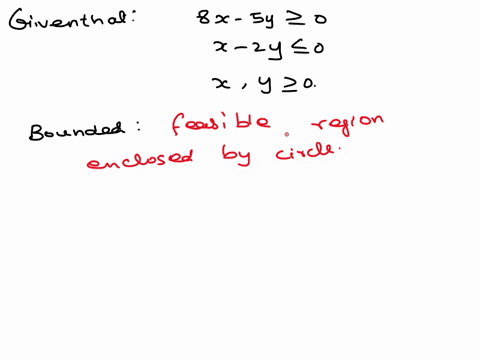 Giventhat: 8x - 5y ≥ 0
x - 2y ≤ 0
x, y ≥ 0.
Bounded: feasible region
enclosed by circle.